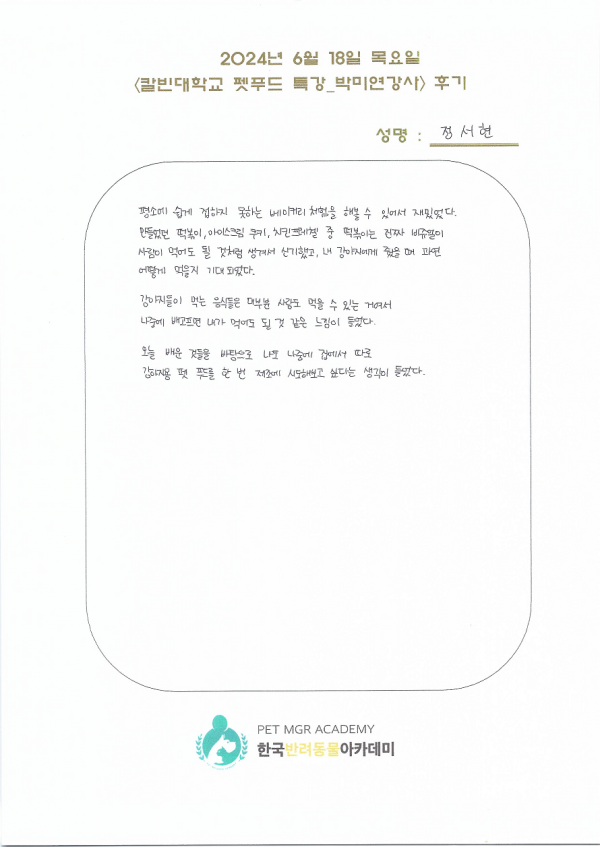 2024년 6월 18일 목요일
<칼빈대학교 펫푸드 특강_박미연강사> 후기
성명 : 정서현
평소에 쉽게 접하지 못하는 베이커리 체험을 해볼 수 있어서 재밌었다.
만들었던 떡볶이, 아이스크림 쿠키, 치킨크레첼 중 떡볶이는 진짜 비쥬얼이
사람이 먹어도 될 것처럼 생겨서 신기했고, 내 강아지에게 줬을 때 과연
어떻게 먹을지 기대 되었다.
강아지들이 먹는 음식들은 대부분 사람도 먹을 수 있는 거여서
나중에 배고프면 내가 먹어도 될 것 같은 느낌이 들었다.
오늘 배운 것들을 바탕으로 나도 나중에 집에서 따로
강아지용 펫 푸드를 한 번 제조에 시도해보고 싶다는 생각이 들었다.
PET MGR ACADEMY
한국반려동물아카데미